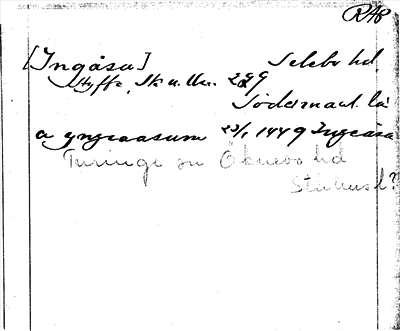 RAP
[Ingåsa] Selebo hd
Hyffe, Sk u. Un. 229
Södermanl. län
a yngeaasum 23/1 1449 Ingeåsa
Turinge sn Öknebo hd
Sthlms l?